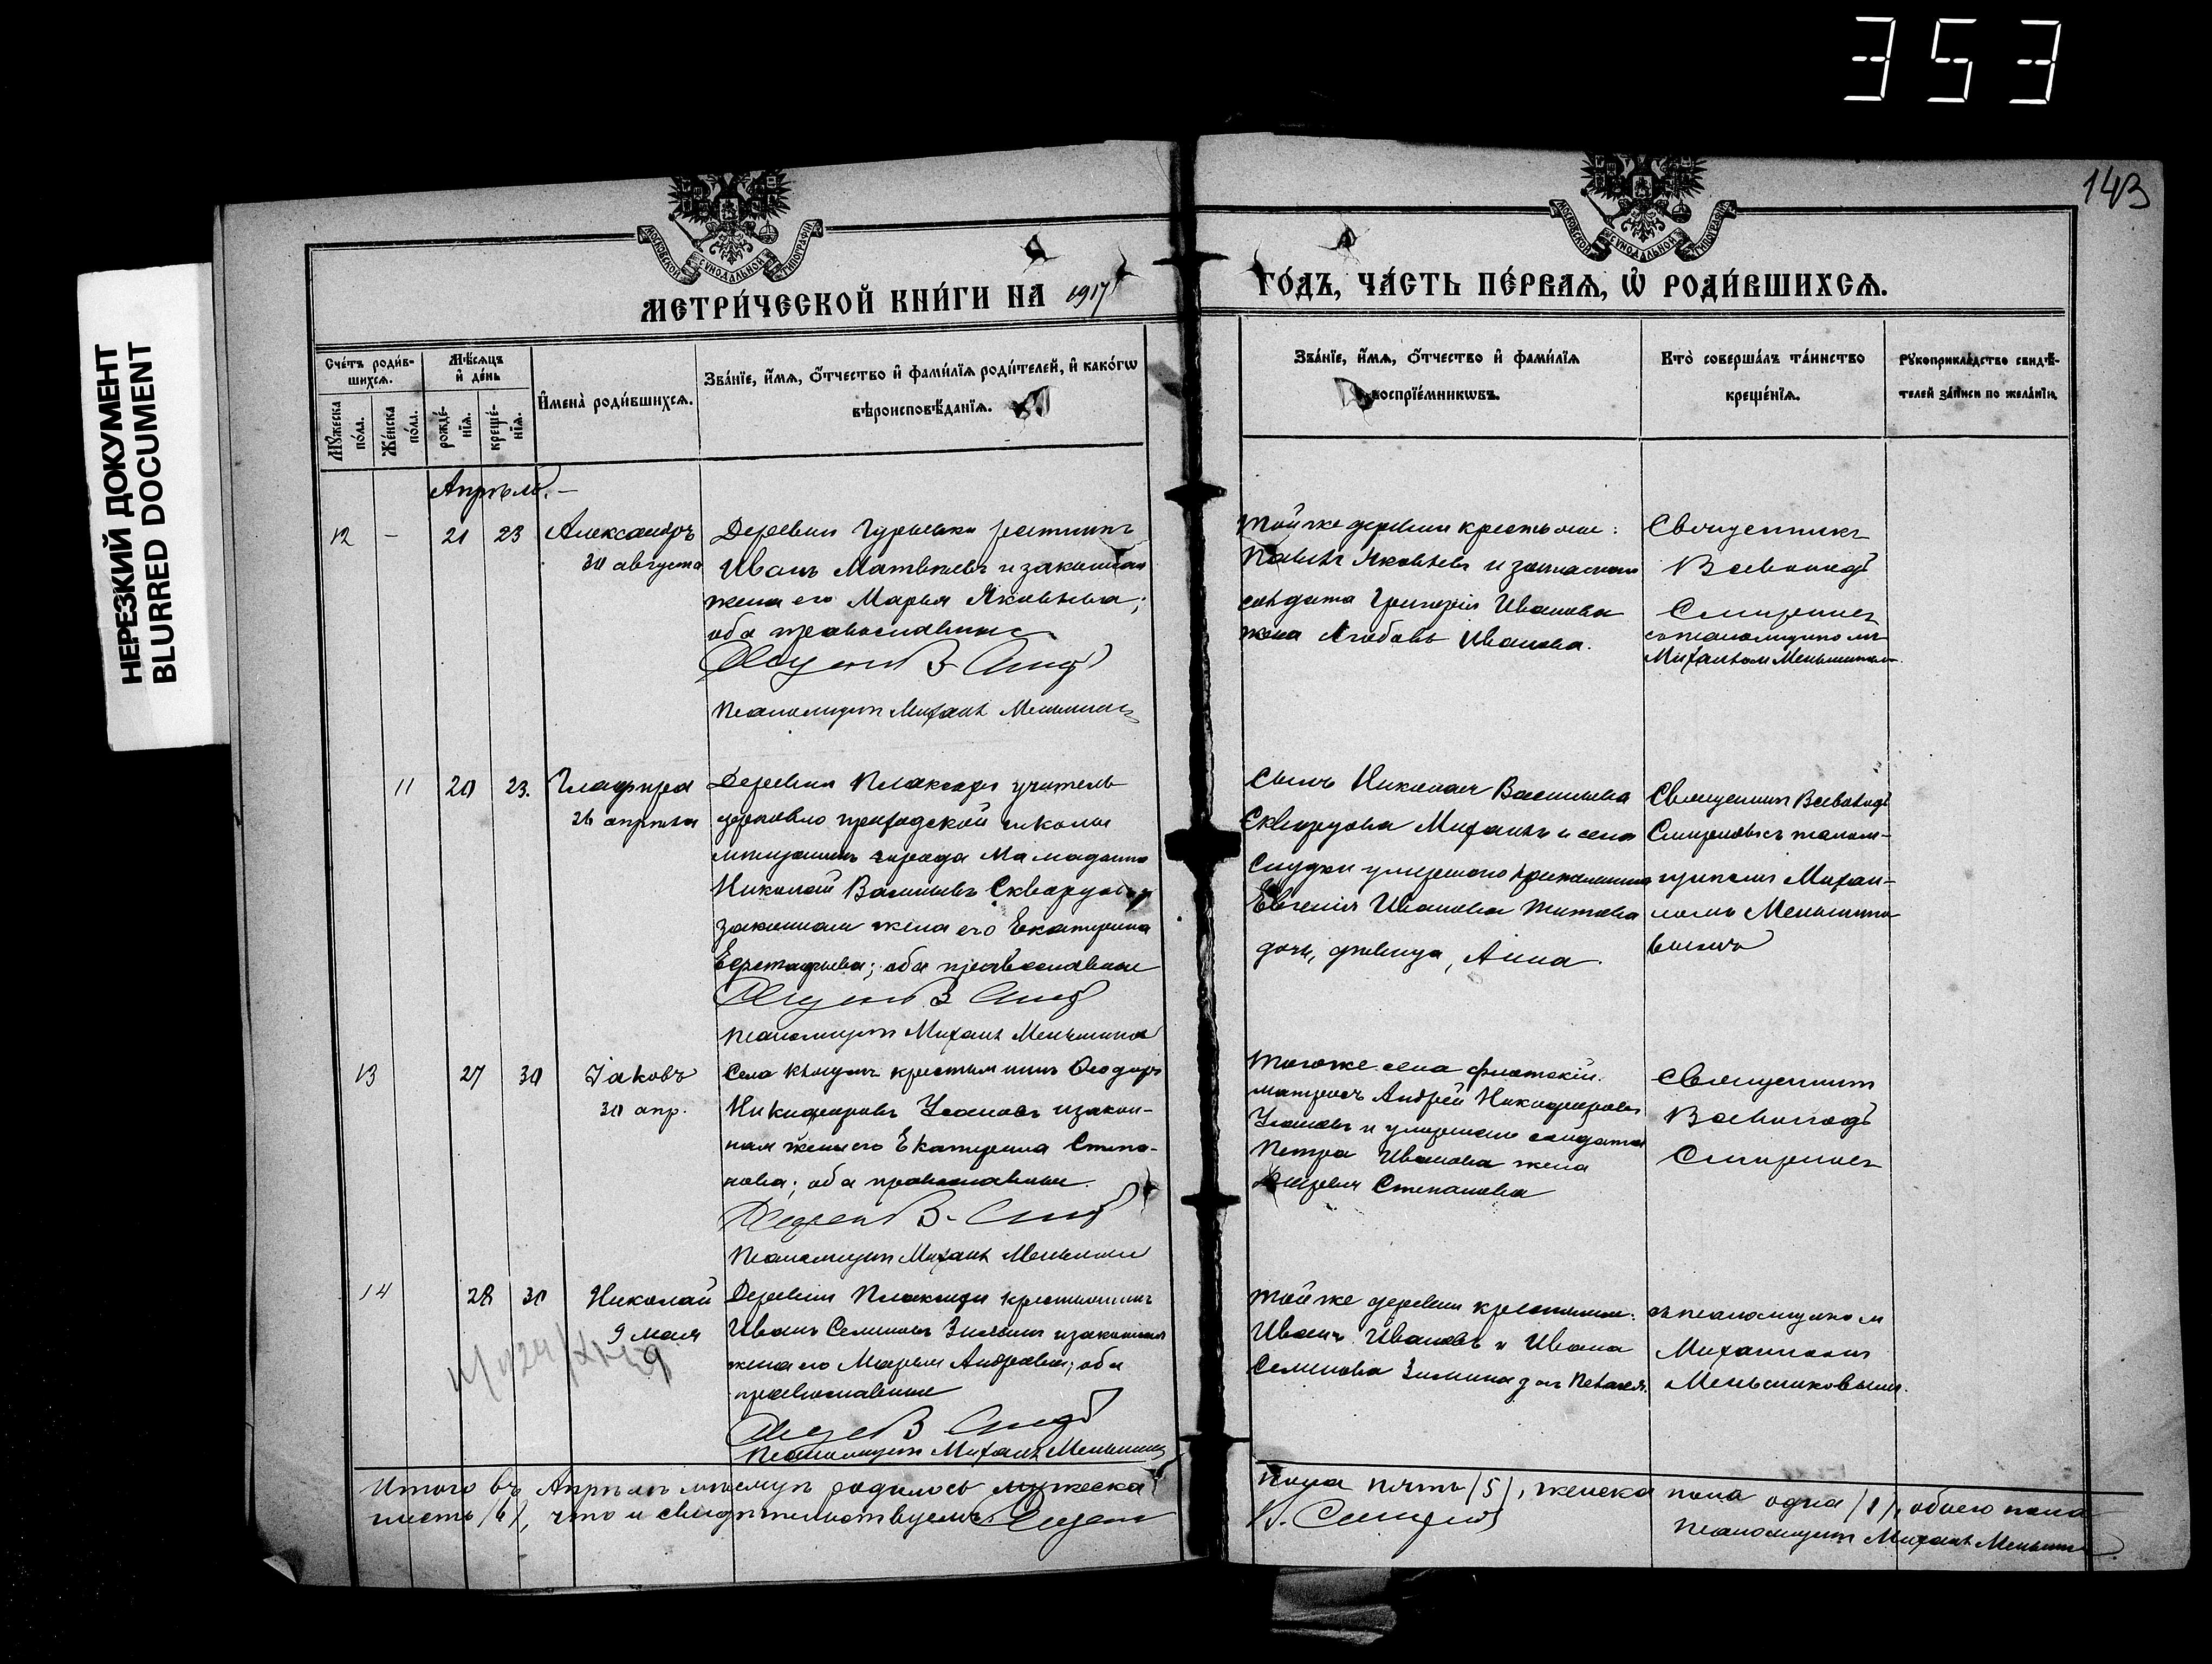 353
143
НЕРЕЗКИЙ ДОКУМЕНТ
BLURRED DOCUMENT
МОСКОВСКОЙ СѴНОДАЛЬНОЙ ТИПОГРАФІИ
МОСКОВСКОЙ СѴНОДАЛЬНОЙ ТИПОГРАФІИ
МЕТРИ́ЧЕСКОЙ КНИ́ГИ НА 1917
ГО́ДЪ, ЧА́СТЬ ПЕ́РВАѦ, Ѡ҆ РОДИ́ВШИХСѦ.
Сче́тъ роди́в-
шихсѧ.
Мꙋ́жеска
по́ла.
Же́нска
по́ла.
Мѣ́сѧцъ
и҆ де́нь
рожде́-
нїѧ.
креще́-
нїѧ.
И҆мена̀ роди́вшихсѧ.
Зва́нїе, и҆́мѧ, ѻ҆́тчество и҆ фами́лїѧ роди́телей, и҆ како́гѡ
вѣроисповѣ́данїѧ.
Зва́нїе, и҆́мѧ, ѻ҆́тчество и҆ фами́лїѧ
воспрїе́мникѡвъ.
Кто̀ соверша́лъ та́инство
креще́нїѧ.
Рꙋкоприкла́дство свидѣ́-
телей за́писи по жела́нїю.
Апрѣль.
12 - 21 23 Александръ
30 августа
Деревни
Иванъ Матвѣевъ и законная
жена его Марья Яковлева;
оба православные
Псаломщикъ Михаилъ Меньшиковъ
Той же деревни крестьяне:
Павелъ Яковлевъ и запаснаго
солдата Григорія Иванова
жена Любовь Иванова.
Священникъ
Всеволодъ
Смирновъ
съ псаломщикомъ
Михаиломъ Меньшиковымъ.
11 20 23. Глафира
26 апрѣля
Деревни учитель
церковно приходской школы
мѣщанинъ города Мамадыша
Николай Васильевъ Скворцовъ и
законная жена его Екатерина
Евстафьева; оба православные
Псаломщикъ Михаилъ Меньшиковъ
Сынъ Николая Васильева
Скворцова Михаилъ и села
умершаго крестьянина
Евгенія Иванова Титова
дочь, дѣвица, Анна.
Священникъ Всеволодъ
Смирновъ съ псалом-
щикомъ Михаи-
ломъ Меньшико-
вымъ
13 27 30 Іаковъ
30 апр.
Села крестьянинъ Ѳеодоръ
Никифоровъ Усановъ и закон-
ная жена его Екатерина Степа-
нова; оба православные.
Псаломщикъ Михаилъ Меньшиковъ
Того же села флотскій
матросъ Андрей Никифоровъ
Усановъ и умершаго солдата
Петра Иванова жена
Степанова
Священникъ
Всеволодъ
Смирновъ
14 28 30 Николай
9 мая
Деревни крестьянинъ
Иванъ Семеновъ Зиминъ и законная
жена его Марья Андреева; оба
православные
Псаломщикъ Михаилъ Меньшиковъ
Той же деревни крестьяне:
Иванъ Ивановъ и Ивана
Семенова Зимина дочь Пелагея.
съ псаломщикомъ
Михаиломъ
Меньшиковымъ.
Итого въ Апрѣлѣ мѣсяцѣ родилось мужеска
пола пять /5/, женска пола одна /1/, обоего пола
шесть /6/, что и свидѣтельствуемъ:
В. Смирновъ
Псаломщикъ Михаилъ Меньшиковъ.